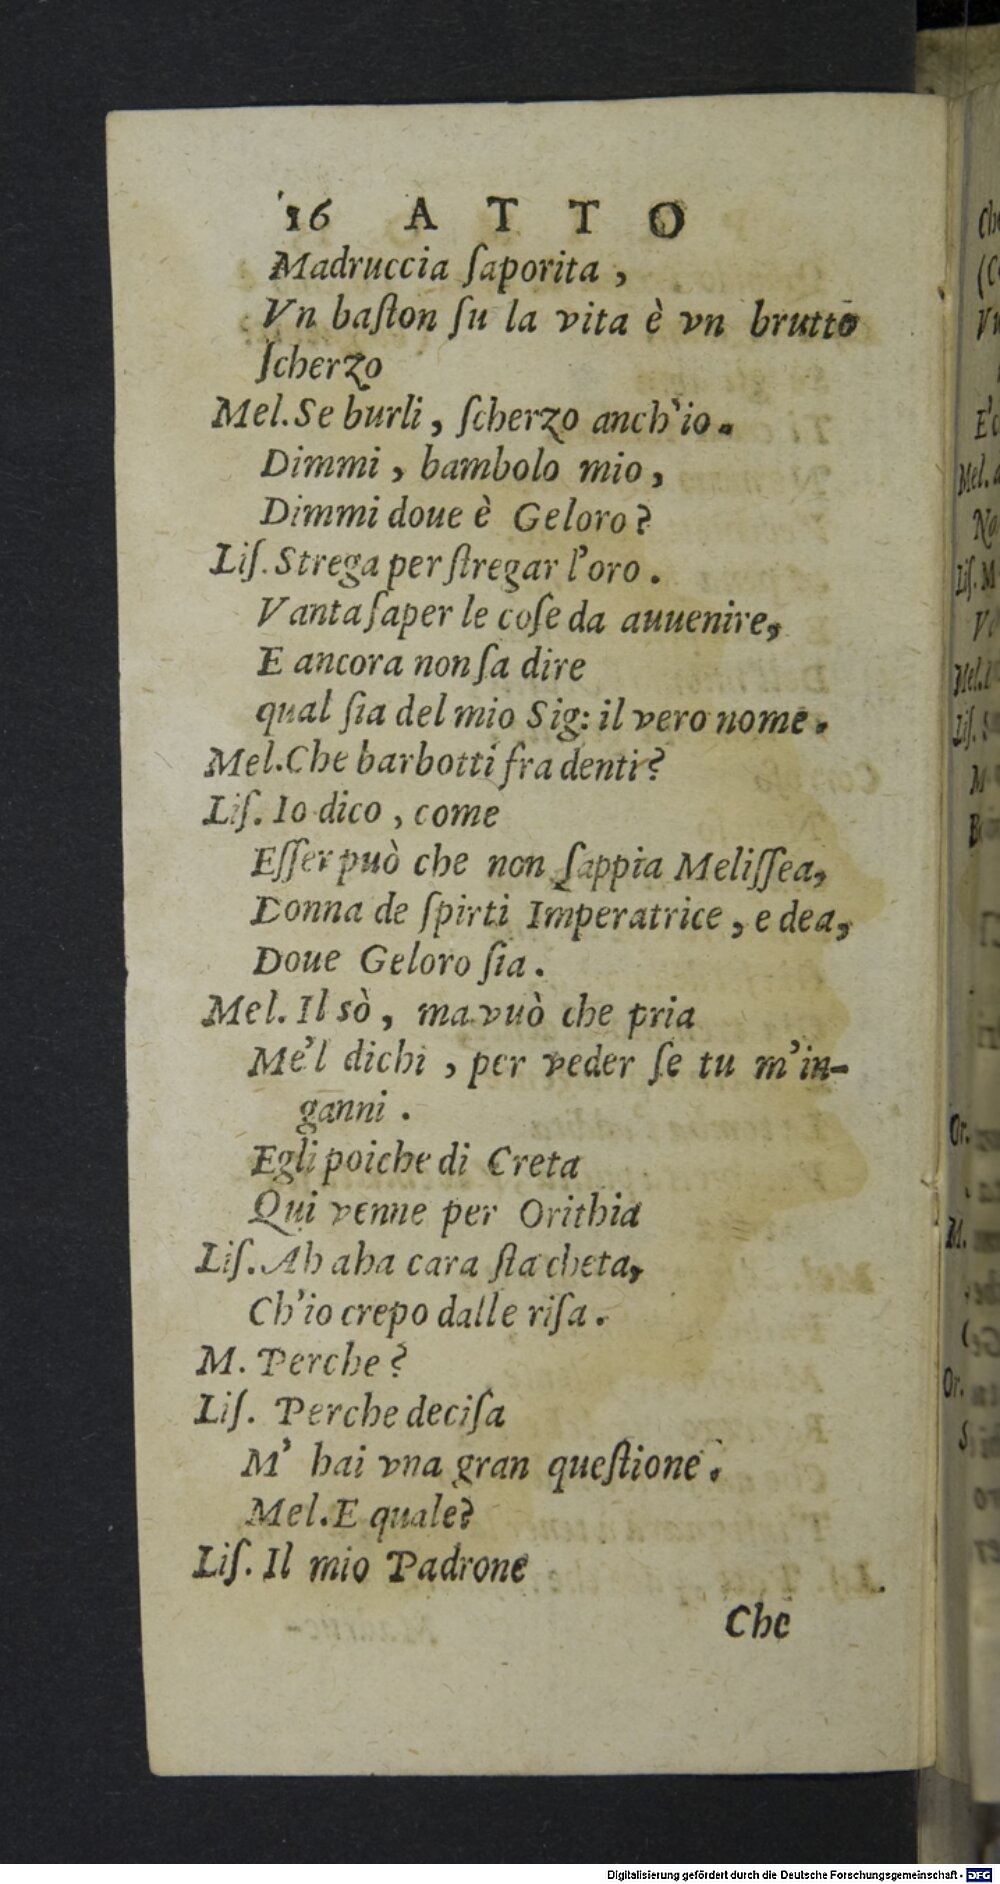 16 ATTO
Madruccia ſaporita,
Vn baſton ſu la vita è vn brutto
ſcherzo
Mel. Se burli, ſcherzo anch'io.
Dimmi, bambolo mio,
Dimmi doue è Geloro?
Liſ. Strega per ſtregar l'oro.
Vanta ſaper le coſe da auuenire,
E ancora non ſa dire
qual ſia del mio Sig: il vero nome.
Mel. Che barbotti fra denti?
Liſ. Io dico, come
Eſſer può che non ſappia Meliſſea,
Donna de ſpirti Imperatrice, e dea,
Doue Geloro ſia.
Mel. Il sò, ma vuò che pria
Me'l dichi, per veder ſe tu m'in-
ganni.
Egli poiche di Creta
Qui venne per Orithia
Liſ. Ah aha cara ſta cheta,
Ch'io crepo dalle riſa.
M. Perche?
Liſ. Perche deciſa
M' hai vna gran queſtione.
Mel. E quale?
Liſ. Il mio Padrone
Che
Digitalisierung gefördert durch die Deutsche Forschungsgemeinschaft - DFG